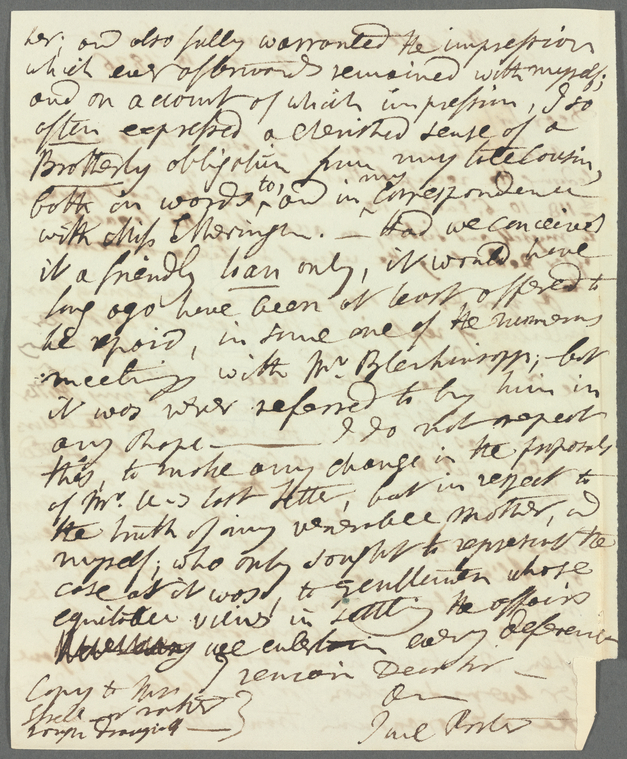 her; and also fully warranted the impression
which ever afterwards remained with myself;
and on account of which impression, I so
often expressed a cherished sense of a
Brotherly obligation from my late Cousin,
both in words to, and in my Correspondence
with Miss Etherington. — Had we conceived
it a friendly loan only, it would have
long ago have been at least offered to
be repaid, in some one of the numerous
meetings with Mr. Blenkinsopp; but
it was never referred to by him in
any shape — I do not repeat
this, to make any change in the proposals
of Mr. last letter, but in respect to
the truth of my venerable Mother, and
myself; who only sought to represent the
case as it was, to gentlemen whose
equitable views in settling the affairs
we entertain every deference
I remain Dear Sir —
Copy to
Jane Porter